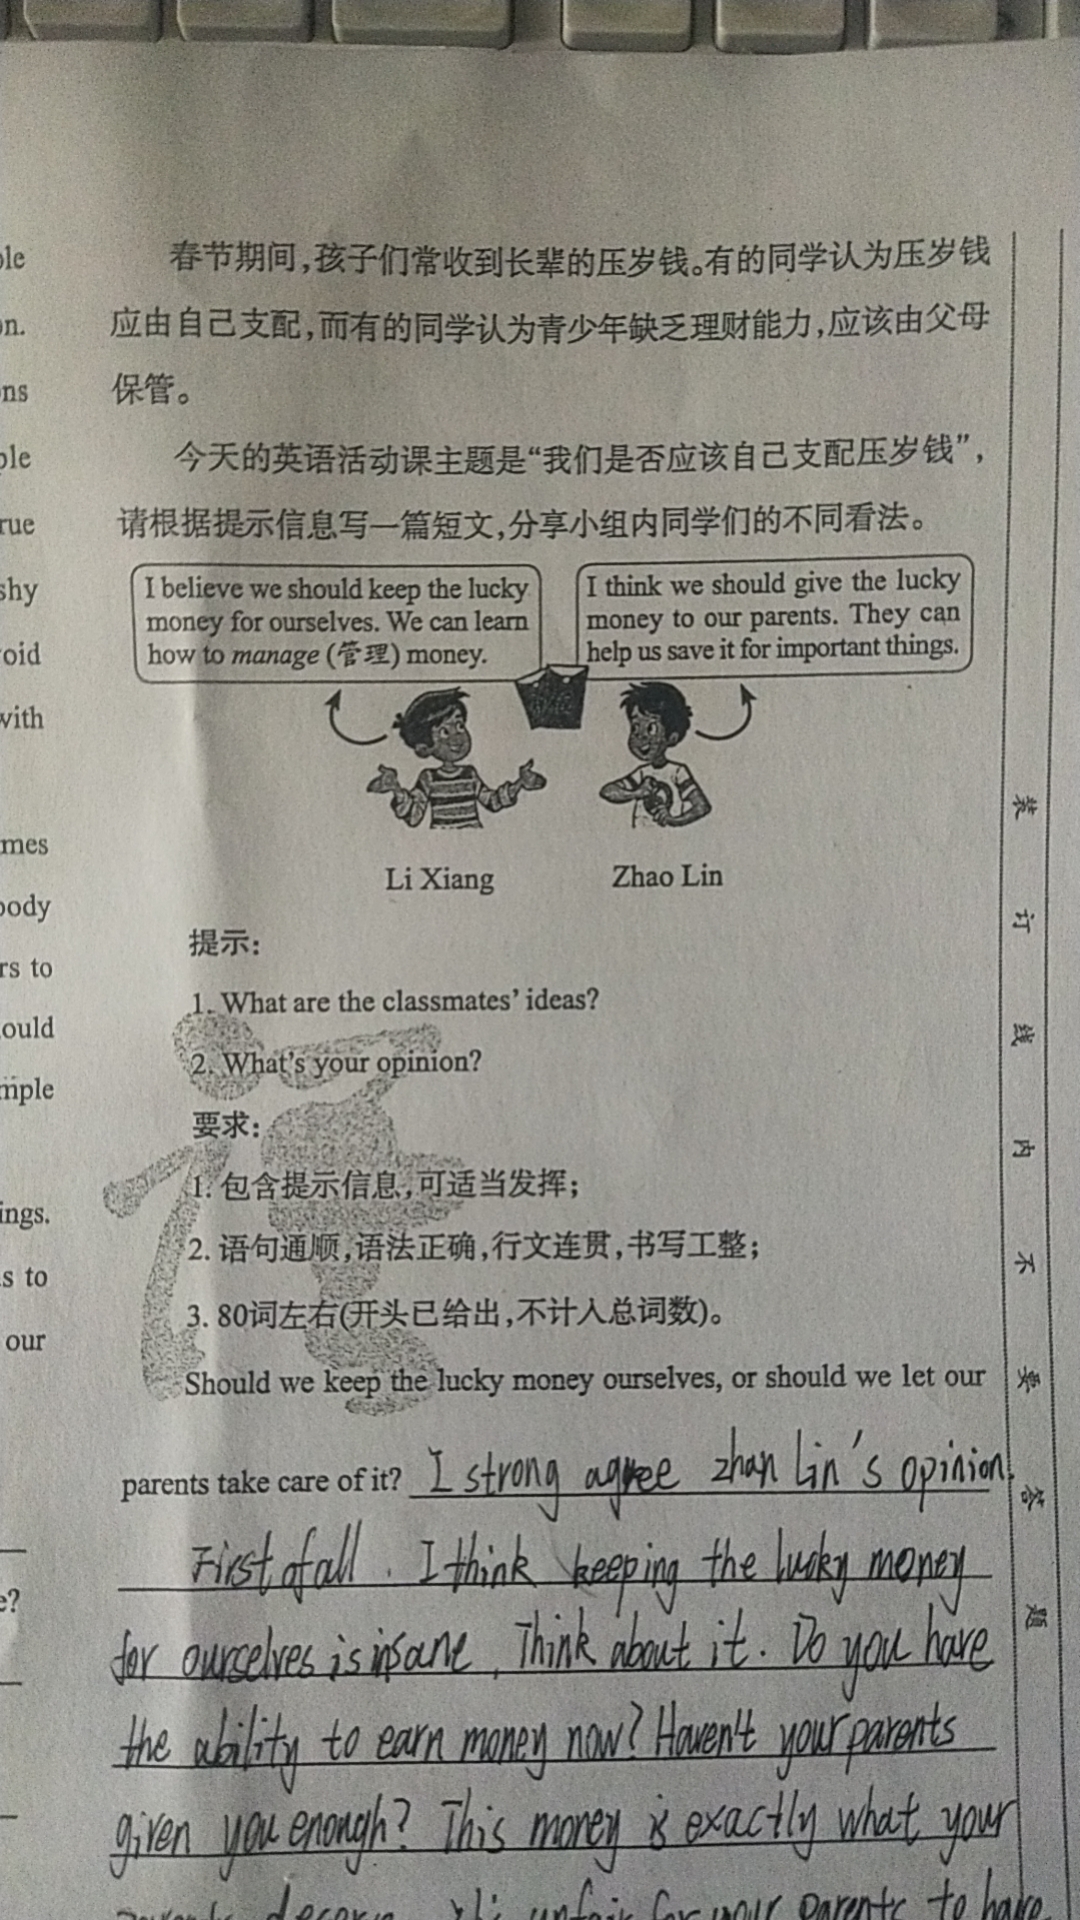 ole
on.
ons
ole
rue
shy
void
with
mes
body
rs to
ould
mple
ings.
s to
our
e?
春节期间,孩子们常收到长辈的压岁钱。有的同学认为压岁钱
应由自己支配,而有的同学认为青少年缺乏理财能力,应该由父母
保管。
今天的英语活动课主题是“我们是否应该自己支配压岁钱”,
请根据提示信息写一篇短文,分享小组内同学们的不同看法。
I believe we should keep the lucky
money for ourselves. We can learn
how to manage (管理) money.
I think we should give the lucky
money to our parents. They can
help us save it for important things.
Li Xiang
Zhao Lin
提示:
1. What are the classmates' ideas?
2. What's your opinion?
要求:
1. 包含提示信息,可适当发挥;
2. 语句通顺,语法正确,行文连贯,书写工整;
3. 80词左右(开头已给出,不计入总词数)。
Should we keep the lucky money ourselves, or should we let our
parents take care of it? I strong agree zhan Lin's opinion.
First of all. I think keeping the lucky money
for ourselves is insane, Think about it. Do you have
the ability to earn money now? Haven't your parents
given you enough? This money is exactly what your
unfair for your parents to have
装订线内不要答题